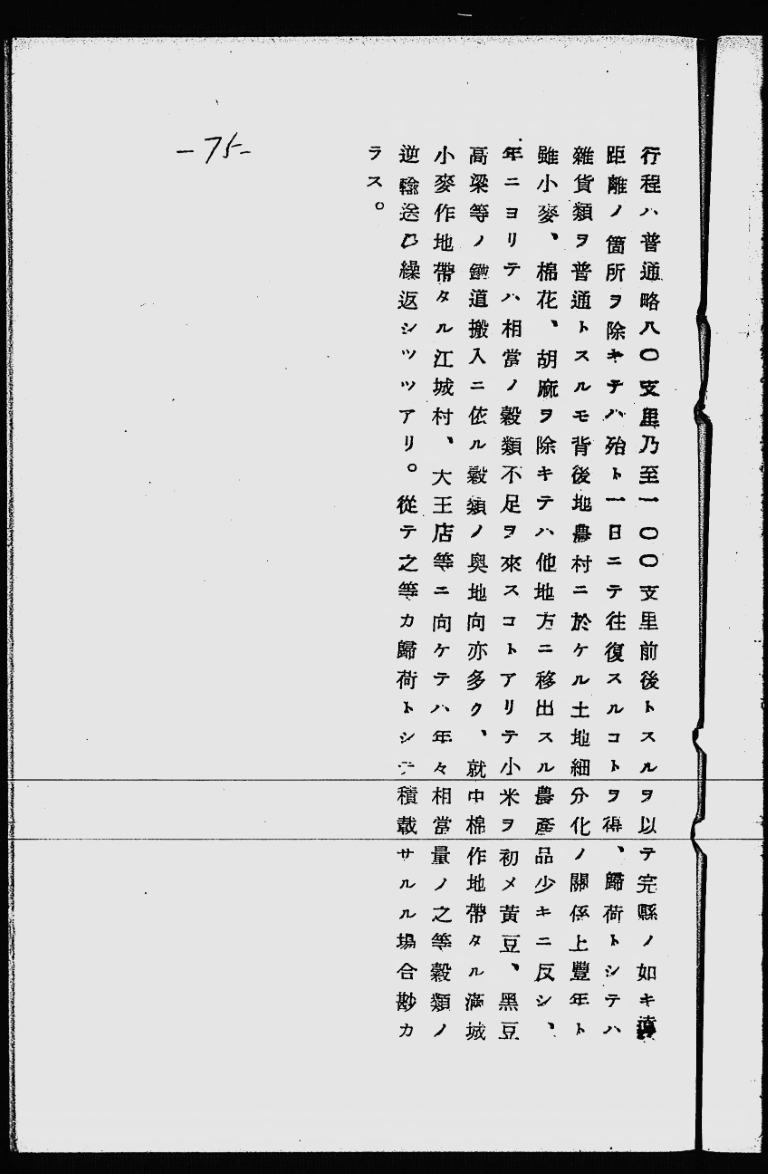 行程ハ普通略八〇支里乃至一〇〇支里前後トスルヲ以テ完縣ノ如キ遠
距離ノ箇所ヲ除キテハ殆ト一日ニテ往復スルコトヲ得、歸荷トシテハ
雜貨類ヲ普通トスルモ背後地農村ニ於ケル土地細分化ノ關係上豐年ト
雖小麥、棉花、胡麻ヲ除キテハ他地方ニ移出スル農產品少キニ反シ、
年ニヨリテハ相當ノ穀類不足ヲ來スコトアリテ小米ヲ初メ黃豆、黑豆
高梁等ノ鐵道搬入ニ依ル穀類ノ奧地向亦多ク、就中棉作地帶タル滿城
小麥作地帶タル江城村、大王店等ニ向ケテハ年々相當量ノ之等穀類ノ
逆輸送ヲ繰返シツツアリ。從テ之等カ歸荷トシテ積載サルル場合尠カ
ラス。
-75-